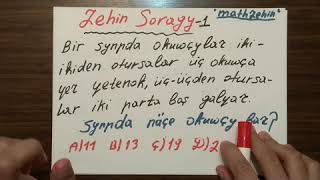 Zehin Soragy-1
"mathzehin"
Bir synpda okuwçylar iki-
ikiden otursalar üç okuwça
ýer ýetenok, üç-üçden otursa-
lar iki parta boş galýar.
Synpda näçe okuwçy bar?
A) 11 B) 13 Ç) 19 D) 2